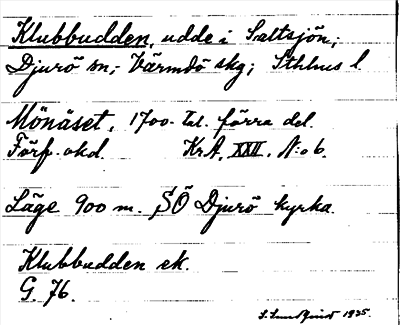 Klubbudden, udde i Saltsjön;
Djurö sn; Värmdö skg; Sthlms l.
Mönäset, 1700-tal. förra del.
Förf. okd. Kr.A. XXII. No 6.
Läge 900 m. SÖ Djurö kyrka.
Klubbudden ek.
G. 76.
S. Lundqvist 1925